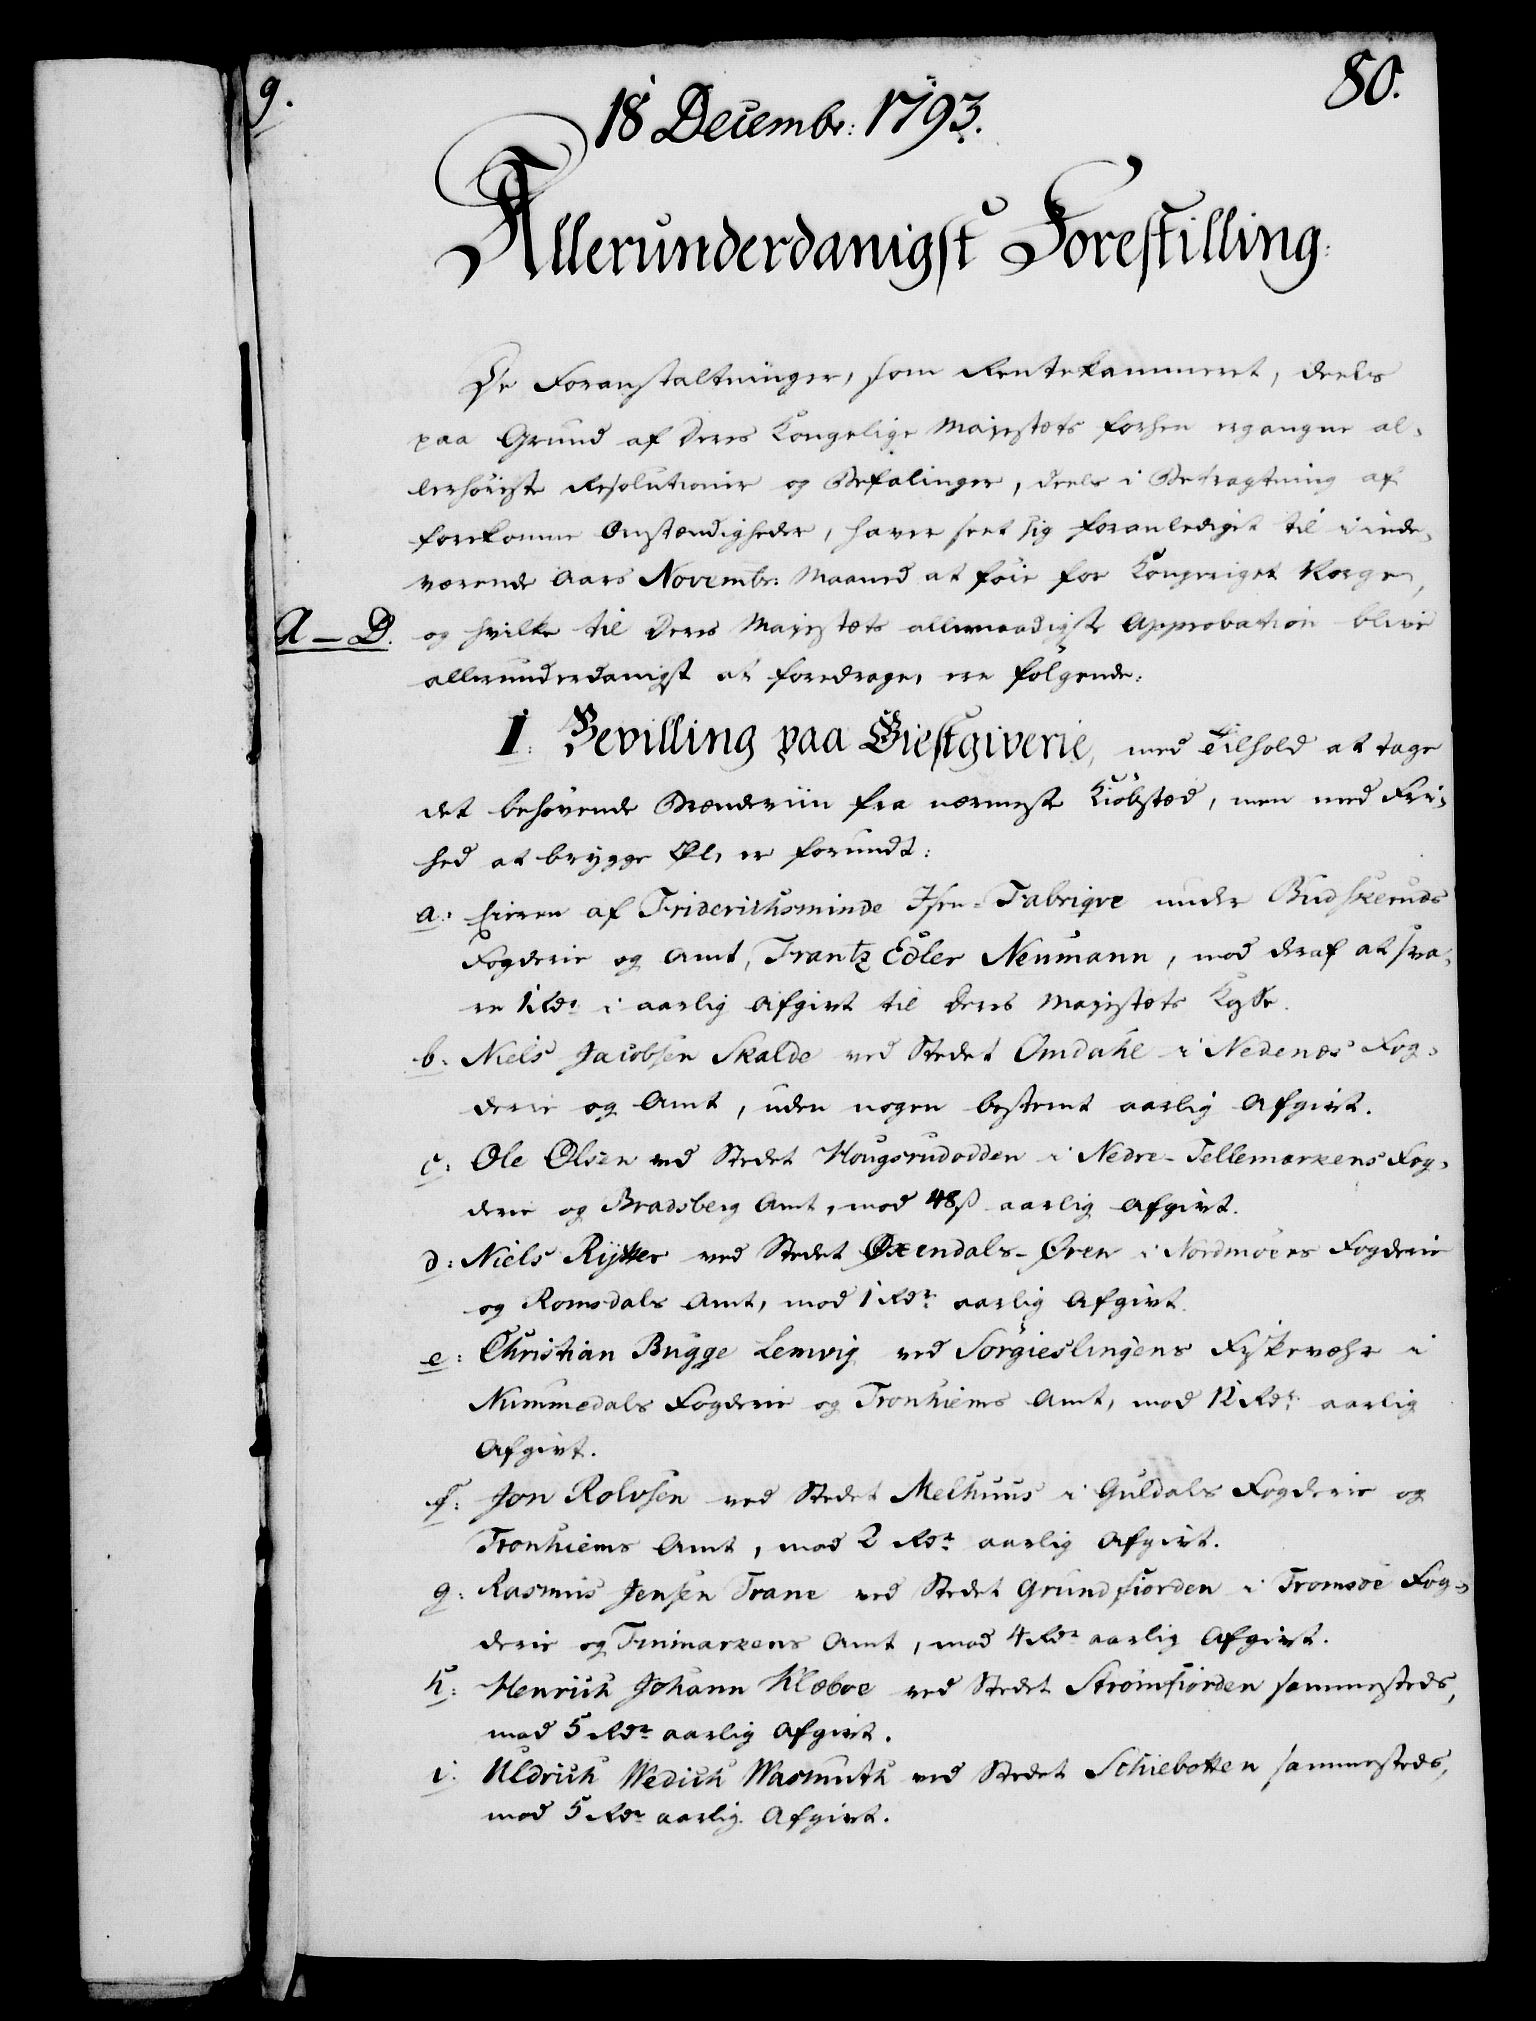 9.
80.
18 Decembr: 1793.
Allerunderdanigst Forestilling:
De Foranstaltninger, som Rentekammeret, deels
paa Grund af Deres Kongelige Majestæts forhen ergangne al-
lerhöieste Resolutioner og Befalinger, deels i Betragtning af
forekomne Omstændigheder, haver seet sig foranlediget til i inde-
værende Aars Novembr: Maaned at föie for Kongeriget Norge,
A - D.
og hvilke til Deres Majestæts allernaadigste Approbation blive
allerunderdanigst at foredrage, ere fölgende:
1. Bevilling paa Giestgiverie, med Tilhold at tage
det behövende Brændeviin fra nærmeste Kiöbstæd, men med Frie-
hed at brygge Öl, er forundt:
a: Eieren af Friderichsminde Isen-Fabriqve under Budskeruds
Fogderie og Amt, Frantz Edler Neumann, mod deraf at sva-
re 1 Rdr i aarlig Afgivt til Deres Majestæts Kasse.
b: Niels Jacobsen Skalde ved Stedet Omdahl i Nedenæs Fog-
derie og Amt, uden nogen bestemt aarlig Afgivt.
c: Ole Olsen ved Stedet Hougsrudodden i Nedre-Tellemarkens Fog-
derie og Bradsberg Amt, mod 48 ß aarlig Afgivt.
d: Niels Rytter ved Stedet Öxendals-Ören i Nordmöers Fogderie
og Romsdals Amt, mod 1 Rdr aarlig Afgivt.
e: Christian Bugge Lemvig ved Sörgieslingens Fiskevæhr i
Nummedals Fogderie og Tronhiems Amt, mod 12 Rdr aarlig
Afgivt.
f: Jon Rolvsen ved Stedet Melhuus i Guldals Fogderie og
Tronhiems Amt, mod 2 Rdr aarlig Afgivt.
g: Rasmus Jensen Trane ved Stedet Grundfiorden i Tromsöe Fog-
derie og Finmarkens Amt, mod 4 Rdr aarlig Afgivt.
h: Henrich Johann Klæboe ved Stedet Strömfiorden sammesteds,
mod 5 Rdr aarlig Afgivt.
i: Uldrich Wedich Wasmuth ved Stedet Schiebotten sammesteds,
mod 5 Rdr aarlig Afgivt.